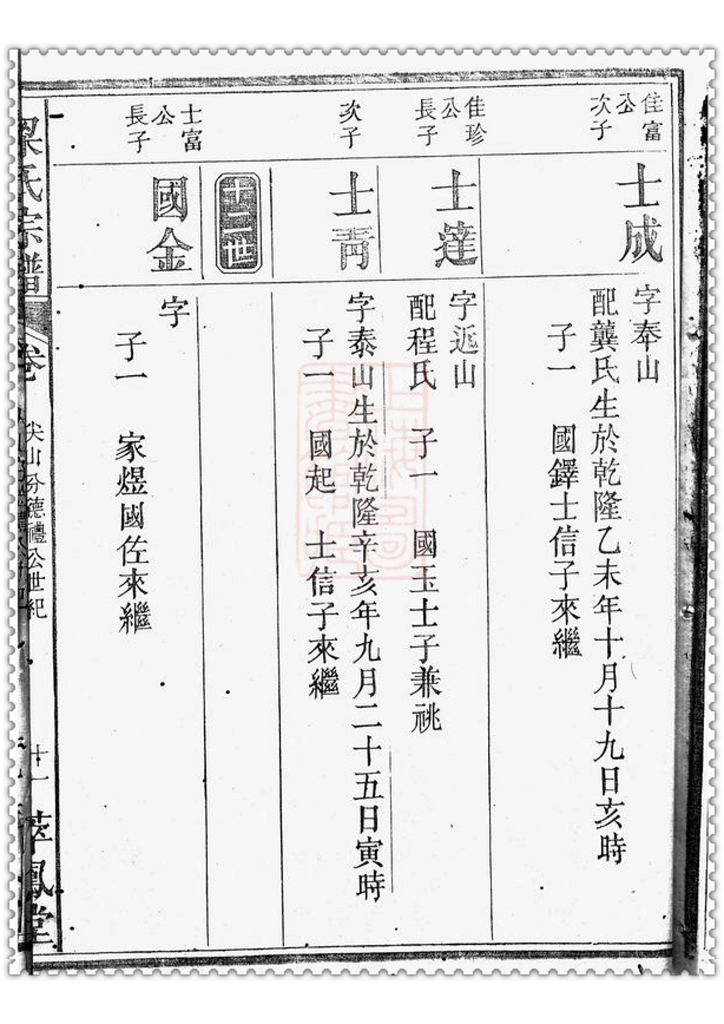 佳富公次子
士成
字奉山
配龔氏生於乾隆乙未年十月十九日亥時
子一 國鐸士信子來繼
佳珍公長子
士達
字远山
配程氏 子一 國玉士子兼祧
次子
士青
字泰山生於乾隆辛亥年九月二十五日寅時
子一 國起 士信子來繼
十二世
士富公長子
國金
字
子一 家煜國佐來繼
梁氏宗譜
卷
尖山分德禮公世紀
十一
萃鳳堂